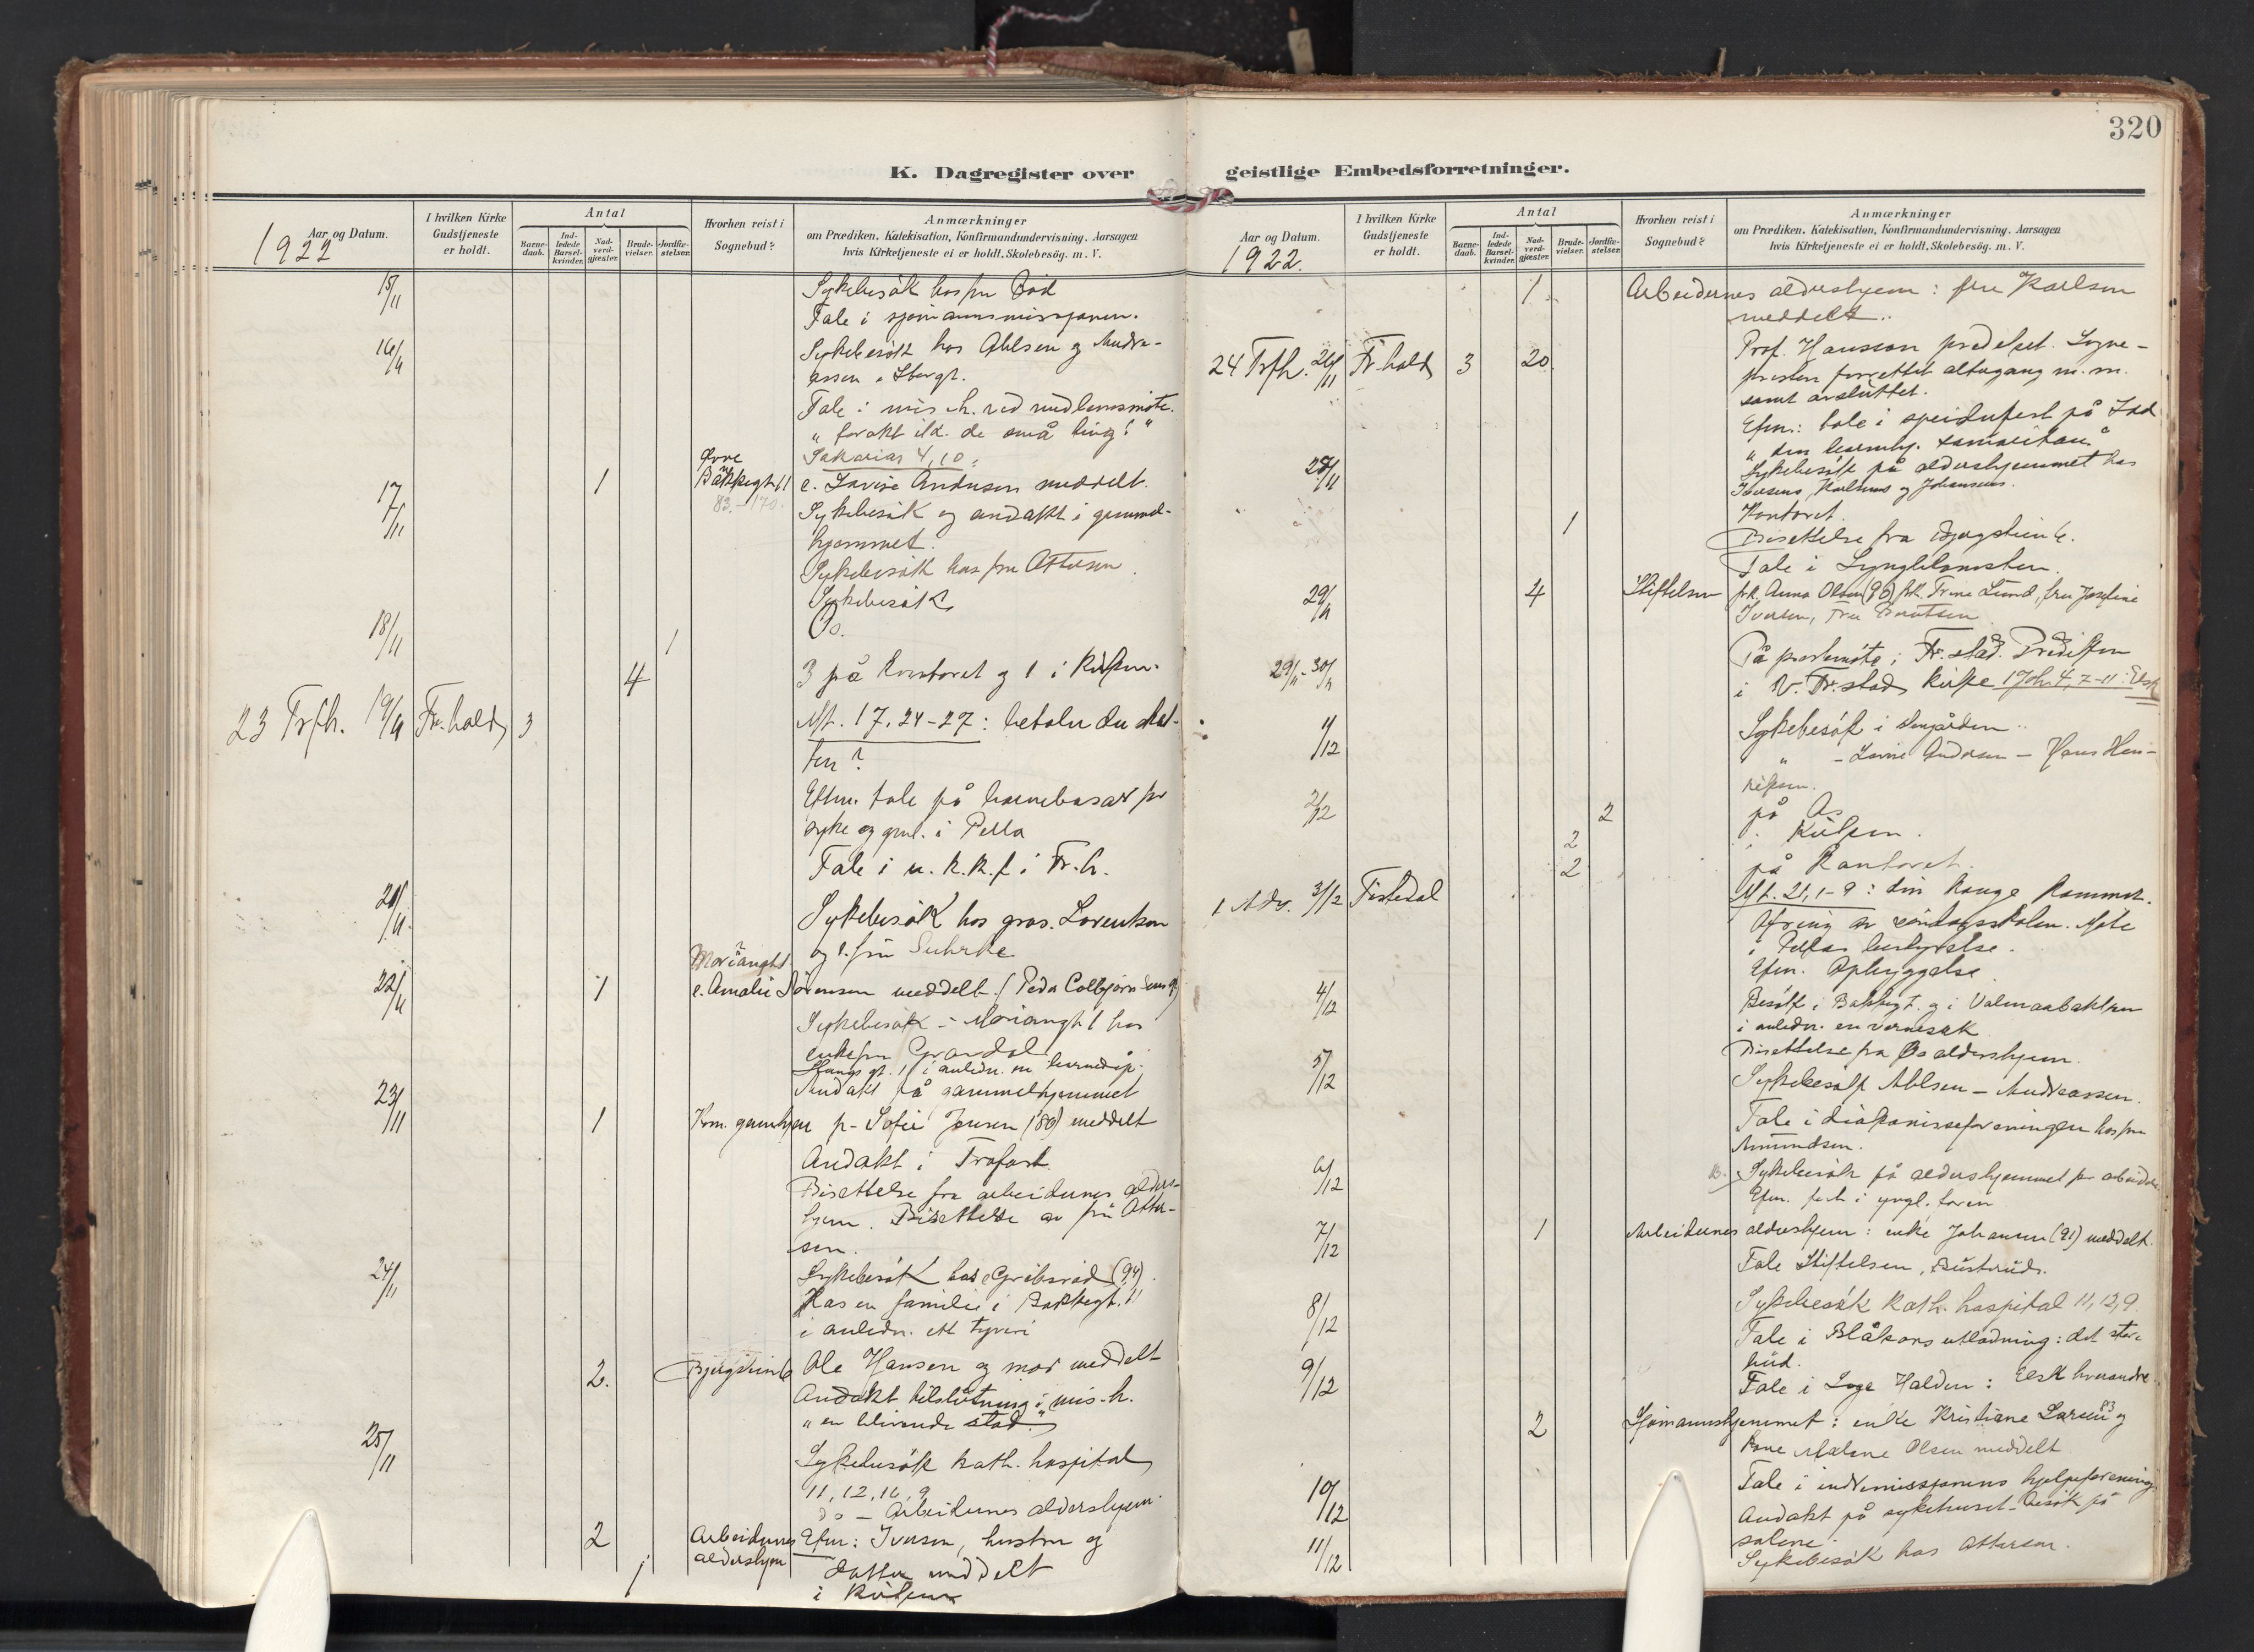 320
K. Dagregister over geistlige Embedsforretninger.
Aar og Datum.
1922
I hvilken Kirke Gudstjeneste er holdt.
Antal
Barnedaab.
Indledede Barselkvinder.
Nadverdgjæster.
Brudevielser.
Jordfæstelser.
Hvorhen reist i Sognebud?
Anmærkninger
om Prædiken, Katekisation, Konfirmandundervisning, Aarsagen
hvis Kirketjeneste ei er holdt, Skolebesøg. m. V.
15/11 Sykebesök hos fru Böd
Tale i sjömannsmissjonen.
16/11 Sykebesök hos Ahlsen og Andre-
assen
Tale i mis.h. ved medlemsmöte.
"forakt ikke de små ting!"
Sakarias 4,10.
17/11 1 Övre Bankegt 11 e. Lovise Andersen meddelt.
83.-170.
Sykebesök og andakt i gammel-
hjemmet.
Sykebesök hos fru Ottersen.
Sykebesök
18/11 1 Os.
4 3 på kontoret og 1 i kirken.
23 Trfh. 19/11 Fr.hald 3 Mt. 17,24-27: betaler du skat-
ten?
Eftm. tale på barnebasar for
syke og gml. i Pella
Tale i u.k.k.f i Fr.h.
20/11 Sykebesök hos gros. Lorentsen
og e.frü Suhrke
22/11 1 e. Amalie Sörensen meddelt. (Peder Colbjörnsens gt)
Sykebesök - hos
enkefru Grandal
i anledn. en barnedåp.
Andakt på gammelhjemmet
23/11 1 Kom. gamhjem p- Sofie Jensen (80) meddelt
Andakt i Trofast.
Bisettelse fra arbeidernes alders-
hjem. Bisettelse av frü Otter-
sen.
24/11 Sykebesök hos Gribsröd (94).
Hos en familie i Bakkegt. 11
i anledn. ett tyveri
2. Bjergstien 6 Ole Hansen og mor meddelt
Andakt tilslutning i mis.h.
"en blivende stad."
25/11 Sykebesök kath. hospital
11, 12, 16, 9
do - Arbeidernes aldershjem.
2 Arbeidernes aldershjem Efm: Iversen, hustru og
datter meddelt
1 i kirken
Aar og Datum.
1922.
I hvilken Kirke Gudstjeneste er holdt.
Antal
Barnedaab.
Indledede Barselkvinder.
Nadverdgjæster.
Brudevielser.
Jordfæstelser.
Hvorhen reist i Sognebud?
Anmærkninger
om Prædiken, Katekisation, Konfirmandundervisning, Aarsagen
hvis Kirketjeneste ei er holdt, Skolebesøg. m. V.
1 Arbeidernes aldershjem: fru Karlsen
meddelt.
24 Trfh. 26/11 Fr.hald 3 20 Prof. Hansson predeket. Sogne-
presten forrettet altergang m.m.
samt avsluttet.
Efm.: tale i speiderfest på Idd
"den barmhj. samaritan."
28/11 Sykebesök på aldershjemmet hos
Iversens, Karlsens og Johansens.
1 Kontoret.
Bisettelse fra Bjergstien 6.
Tale i Lyngblomsten.
29/11 4 Stiftelsen frk. Anna Olsen (90), frk. Trine Lund, fru Josefine
Iversen, Fru Berntsen
29/11-30/11 På prestemöte i Fr.stad. Prediken
i V. Fr.stad kirke 1 Joh. 4, 7-11: Elsk
1/12 Sykebesök i
" - Lovise Andersen - Hans Hen-
riksen.
2/12 2 på Os
2 i kirken.
2 på kontoret.
1 Adv. 3/12 Tistedal Mt. 21, 1-9: din konge kommer.
söndagsskolen. Möte
i Pellas bestyrelse.
Efm. Opbyggelse.
4/12 Besök i Bakkegt. og i
i anledn. en vernesak
Bisettelse fra Os aldershjem.
5/12 Sykebesök Ahlsen - Andreassen.
Tale i diakonisseforeningen hos fru
Amundsen.
6/12 Sykebesök på aldershjemmet for arbeidere
Efm. fest i yngl.foren
7/12 1 Arbeidernes aldershjem: enke Johansen (91) meddelt.
Tale Stiftelsen, Büsterüd.
8/12 Sykebesök kath. hospital 11, 12, 9
Tale i Blåkors utlodning: det store
bud.
9/12 Tale i Loge Halden: Elsk hverandre.
2 Sjömannshjemmet: enke Kristiane Larsen 83 og
kone Malene Olsen meddelt
Tale i indremissjonens hjelpeforening
10/12 Andakt på sykehuset - besök på
salene.
11/12 Sykebesök hos Ottersen.